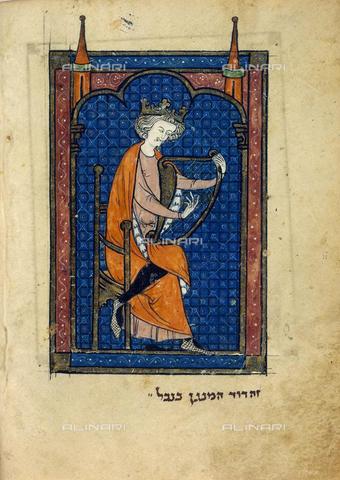 ALINARI
ALINARI
ALINARI
זה דוד המנגן בנבל
ALINARI
ALINARI